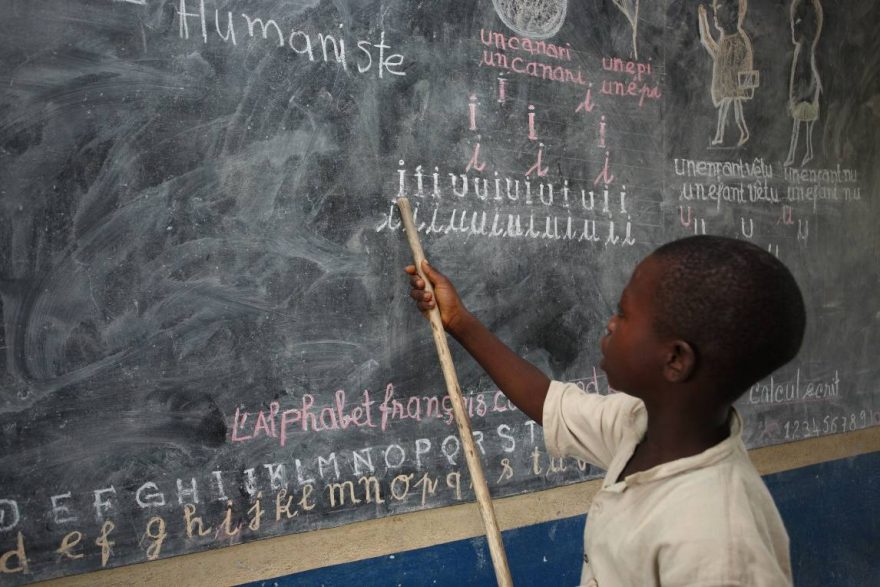 Humaniste
un canari
un canari
un épi
un épi
i
i i i
i i i
i i i u u i u i u i u i i
i i i u u i u i u i u i i
un enfant vêtu un enfant nu
un enfant vêtu un enfant nu
u u u u
L'Alphabet français
calcul écrit
1 2 3 4 5 6 7 8 9
D E F G H I J K L M N O P Q R S T
d e f g h i j k l m n o p q r s t u